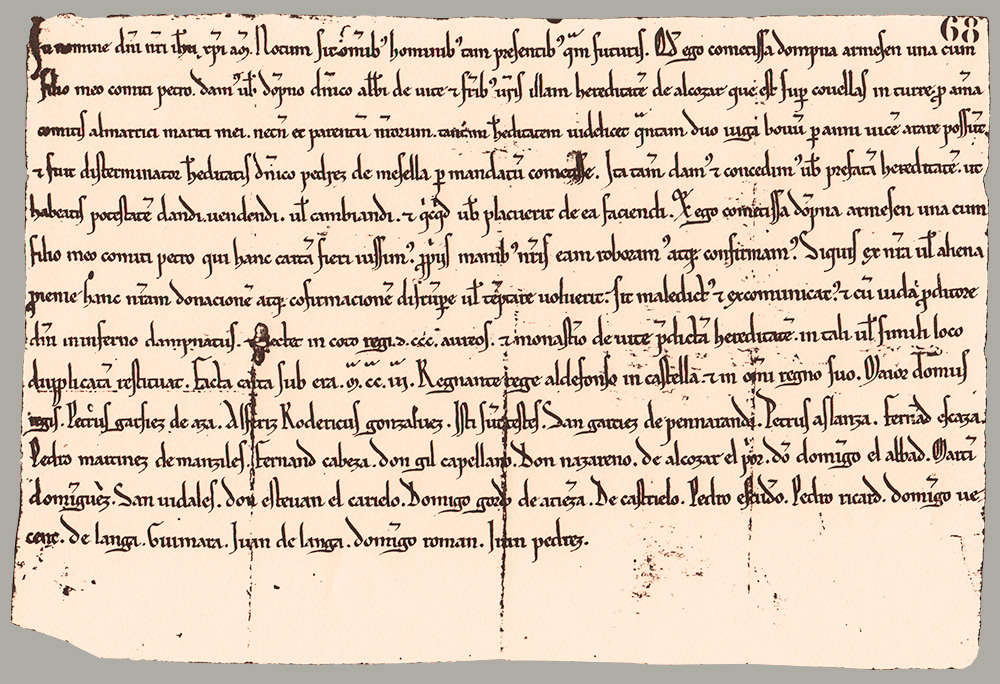 68
In nomine dñi nr̃i ihũ xp̃i am̃. Notum sit om̃ib' hominib' tam presentib' qm̃ futuris. Qd̃ ego cometissa dompna armesen una cum
filio meo comiti petro. dam' ub̃ dõpno dñico abb̃i de uite ⁊ fr̃ib' ur̃is illam hereditatẽ de alcozar que est sup̃ couellas in turre p̱ aĩa
comitis almarrici mariti mei. necñ et parentũ mõrum. h̃editatem uidelicet q̃ntam duo iuga bouũ p̱ anni uicẽ arare possint.
⁊ fuit disterminator h̃editatis dñico pedrez de mesella p̱ mandatũ cometisse. Ita tam̃ dam' ⁊ concedim' ub̃ prefatã hereditatẽ. ut
habeatis potestatẽ dandi. uendendi. ul̃ cambiandi. ⁊ qicqd ub̃ placuerit de ea faciendi. ego cometissa dõpna armesen una cum
filio meo comiti petro qui hanc cartã fieri iussim'. p̱priis manib' nr̃is eam roboram' atq; confirmam'. Siquis ex nr̃a ul̃ aliena
pienie hanc nr̃am donacionẽ atq; cofirmacionẽ disrũpe ul̃ tẽptare uoluerit: sit maledict' ⁊ excomunicat'. ⁊ cũ iuda p̱ditore
dñi in inferno dampnatus. ⁊ pectet in coto regi .d.ccc. aureos. ⁊ monast̃io de uite p̃dictã hereditatẽ. in tali ul̃ simili loco
dupplicatã restituat. Facta carta sub era .m̃. cc. iii. Regnante rege aldefonso in castella ⁊ in om̃i regno suo. Maior dõmus
regis. Petrus garsiez de aza. Alferiz Rodericus gonzaluez. Isti sũt testes. San garciez de pennaranda. Petrus aslanza. Ferrãd escaza.
Pedro martinez de manziles. Fernand cabeza. don gil capellano. Don nazareno. de alcozar el por̃. dõ domĩgo el abbad. Martĩ
domĩguez. San uidales. don esteuan el carielo. Domigo gordo de atiẽza. De castrielo. Pedro Pedro ricard. domĩgo ue-
cente. de langa. Guimara. Juan de langa. domĩgo roman. Juan pedrez.